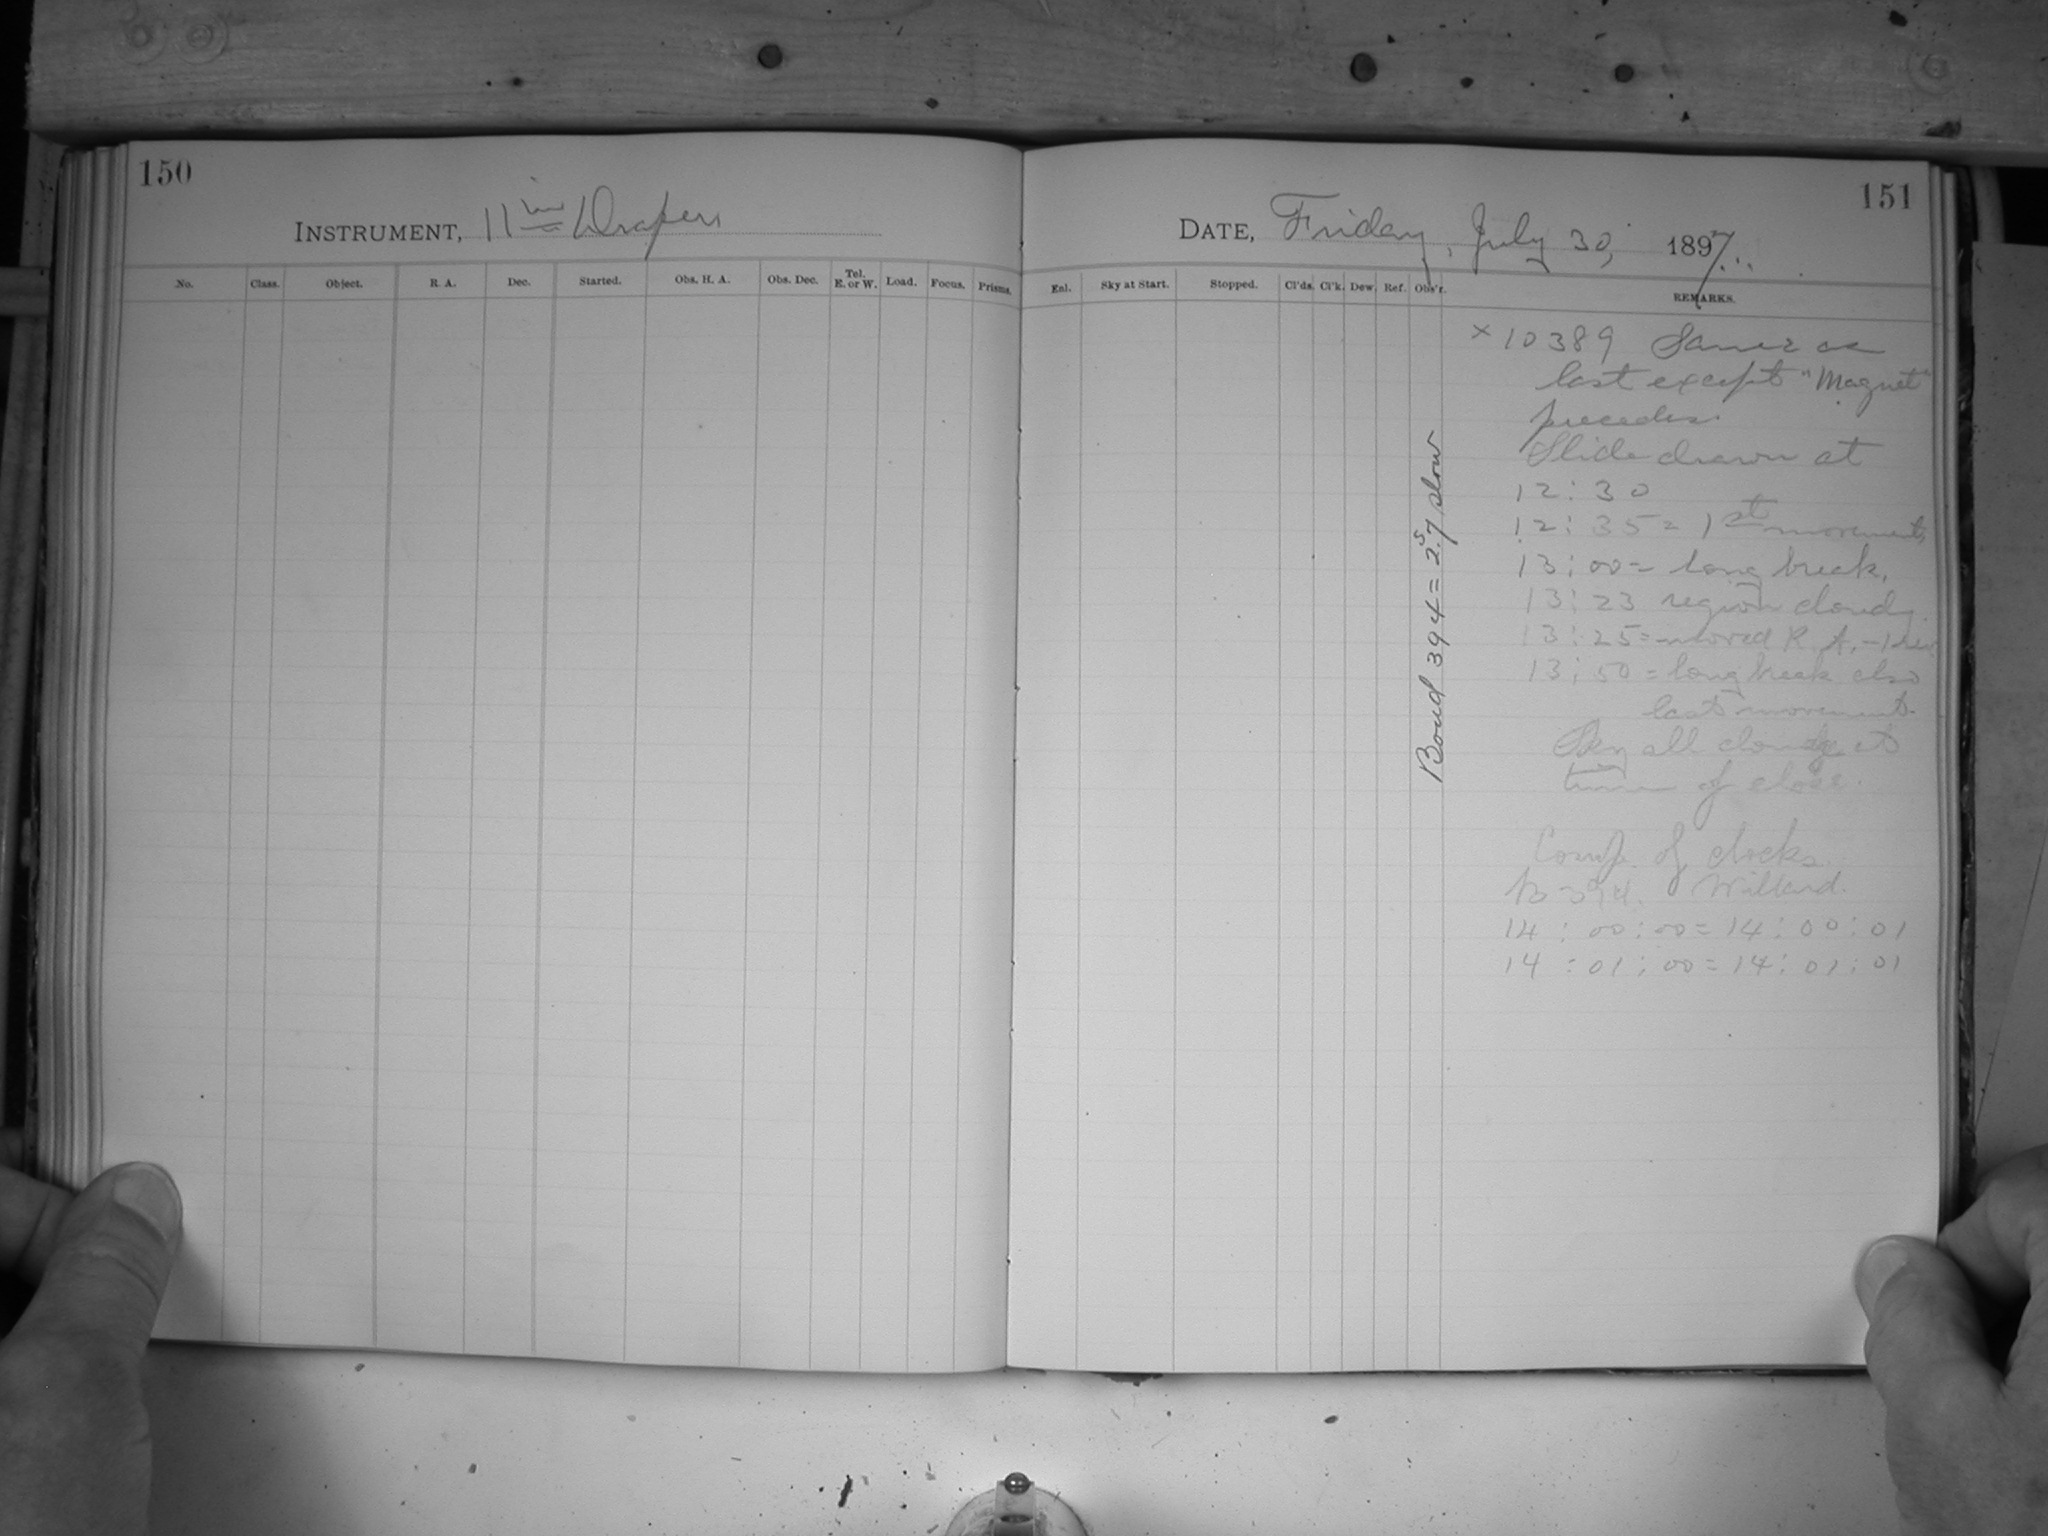 150
INSTRUMENT, 11 in Draper
No. Class. Object. R. A. Dec. Started. Obs. H. A. Obs. Dec. Tel. E. or W. Load. Focus. Prisms.
151
DATE, Friday, July 30, 1897.
Enl. Sky at Start. Stopped. Cl'ds. Cl'k. Dew. Ref. Obs'r. REMARKS.
× 10389 Same as
last except "Magnet"
precedes.
Slide drawn at
12:30
12:35 = 1st movement
13:00 = long break.
13:23 region cloudy
13:25 = moved R. A. -1
13:50 = long break also
last movement.
Sky all cloudy at
time of close.
Comp. of clocks
B-394. Willard.
14:00:00 = 14:00:01
14:01:00 = 14:01:01
Bond 394 = 2.s7 slow